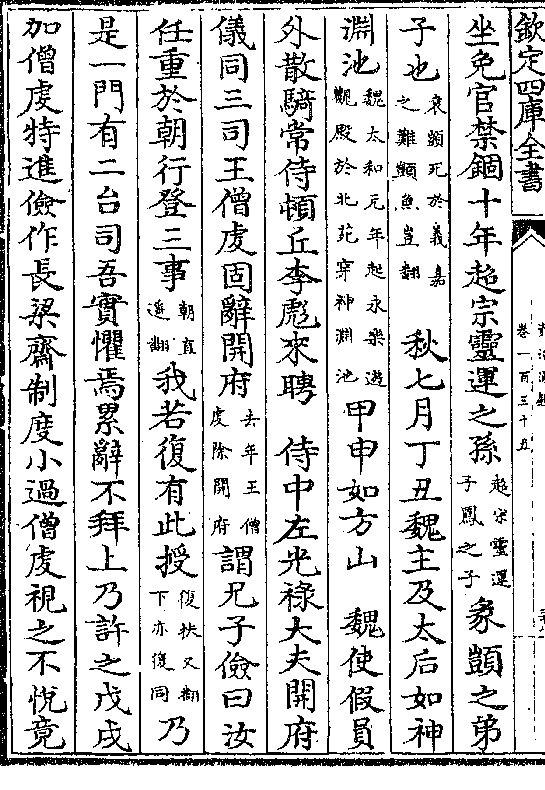 欽定四庫全書
資治通鑑
卷一百三十五
坐免官禁錮十年超宗靈運之孫超宗靈運子鳳之子彖顗之弟
子也袁顗死於義嘉之難顗魚豈翻 秋七月丁丑魏主及太后如神
淵池魏太和元年起永樂遊觀殿於北苑穿神淵池甲申如方山 魏使假員
外散騎常侍頓丘李彪來聘 侍中左光祿大夫開府
儀同三司王僧虔固辭開府去年王僧虔除開府謂兄子儉曰汝
任重於朝行登三事朝直遥翻我若復有此授復扶又翻下亦復同乃
是一門有二台司吾實懼焉累辭不拜上乃許之戊戌
加僧虔特進儉作長梁齋制度小過僧虔視之不悅竟